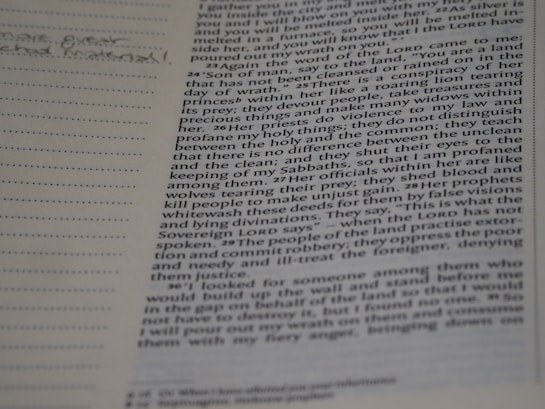 gather you in my and
you inside the city and melt you. 21
and I will blow on you with my fiery
you will be melted inside her. 22 As silver is
melted in a furnace, so you will be melted in-
side her, and you will know that I the LORD have
poured out my wrath on you.'"
23 Again the word of the LORD came to me:
24 'Son of man, say to the land, "you are a land
that has not been cleansed or rained on in the
day of wrath." 25 There is a conspiracy of her
princes b within her like a roaring lion tearing
its prey; they devour people, take treasures and
precious things and make many widows within
her. 26 Her priests do violence to my law and
profane my holy things; they do not distinguish
between the holy and the common; they teach
that there is no difference between the unclean
and the clean; and they shut their eyes to the
keeping of my Sabbaths, so that I am profaned
among them. 27 Her officials within her are like
wolves tearing their prey; they shed blood and
kill people to make unjust gain. 28 Her prophets
whitewash these deeds for them by false visions
and lying divinations. They say, "This is what the
Sovereign LORD says" – when the LORD has not
spoken. 29 The people of the land practise extor-
tion and commit robbery; they oppress the poor
and needy and ill-treat the foreigner, denying
them justice.
30 'I looked for someone among them who
would build up the wall and stand before me
in the gap on behalf of the land so that I would
not have to destroy it, but I found no one. 31 So
I will pour out my wrath on them and consume
them with my fiery anger, bringing down on